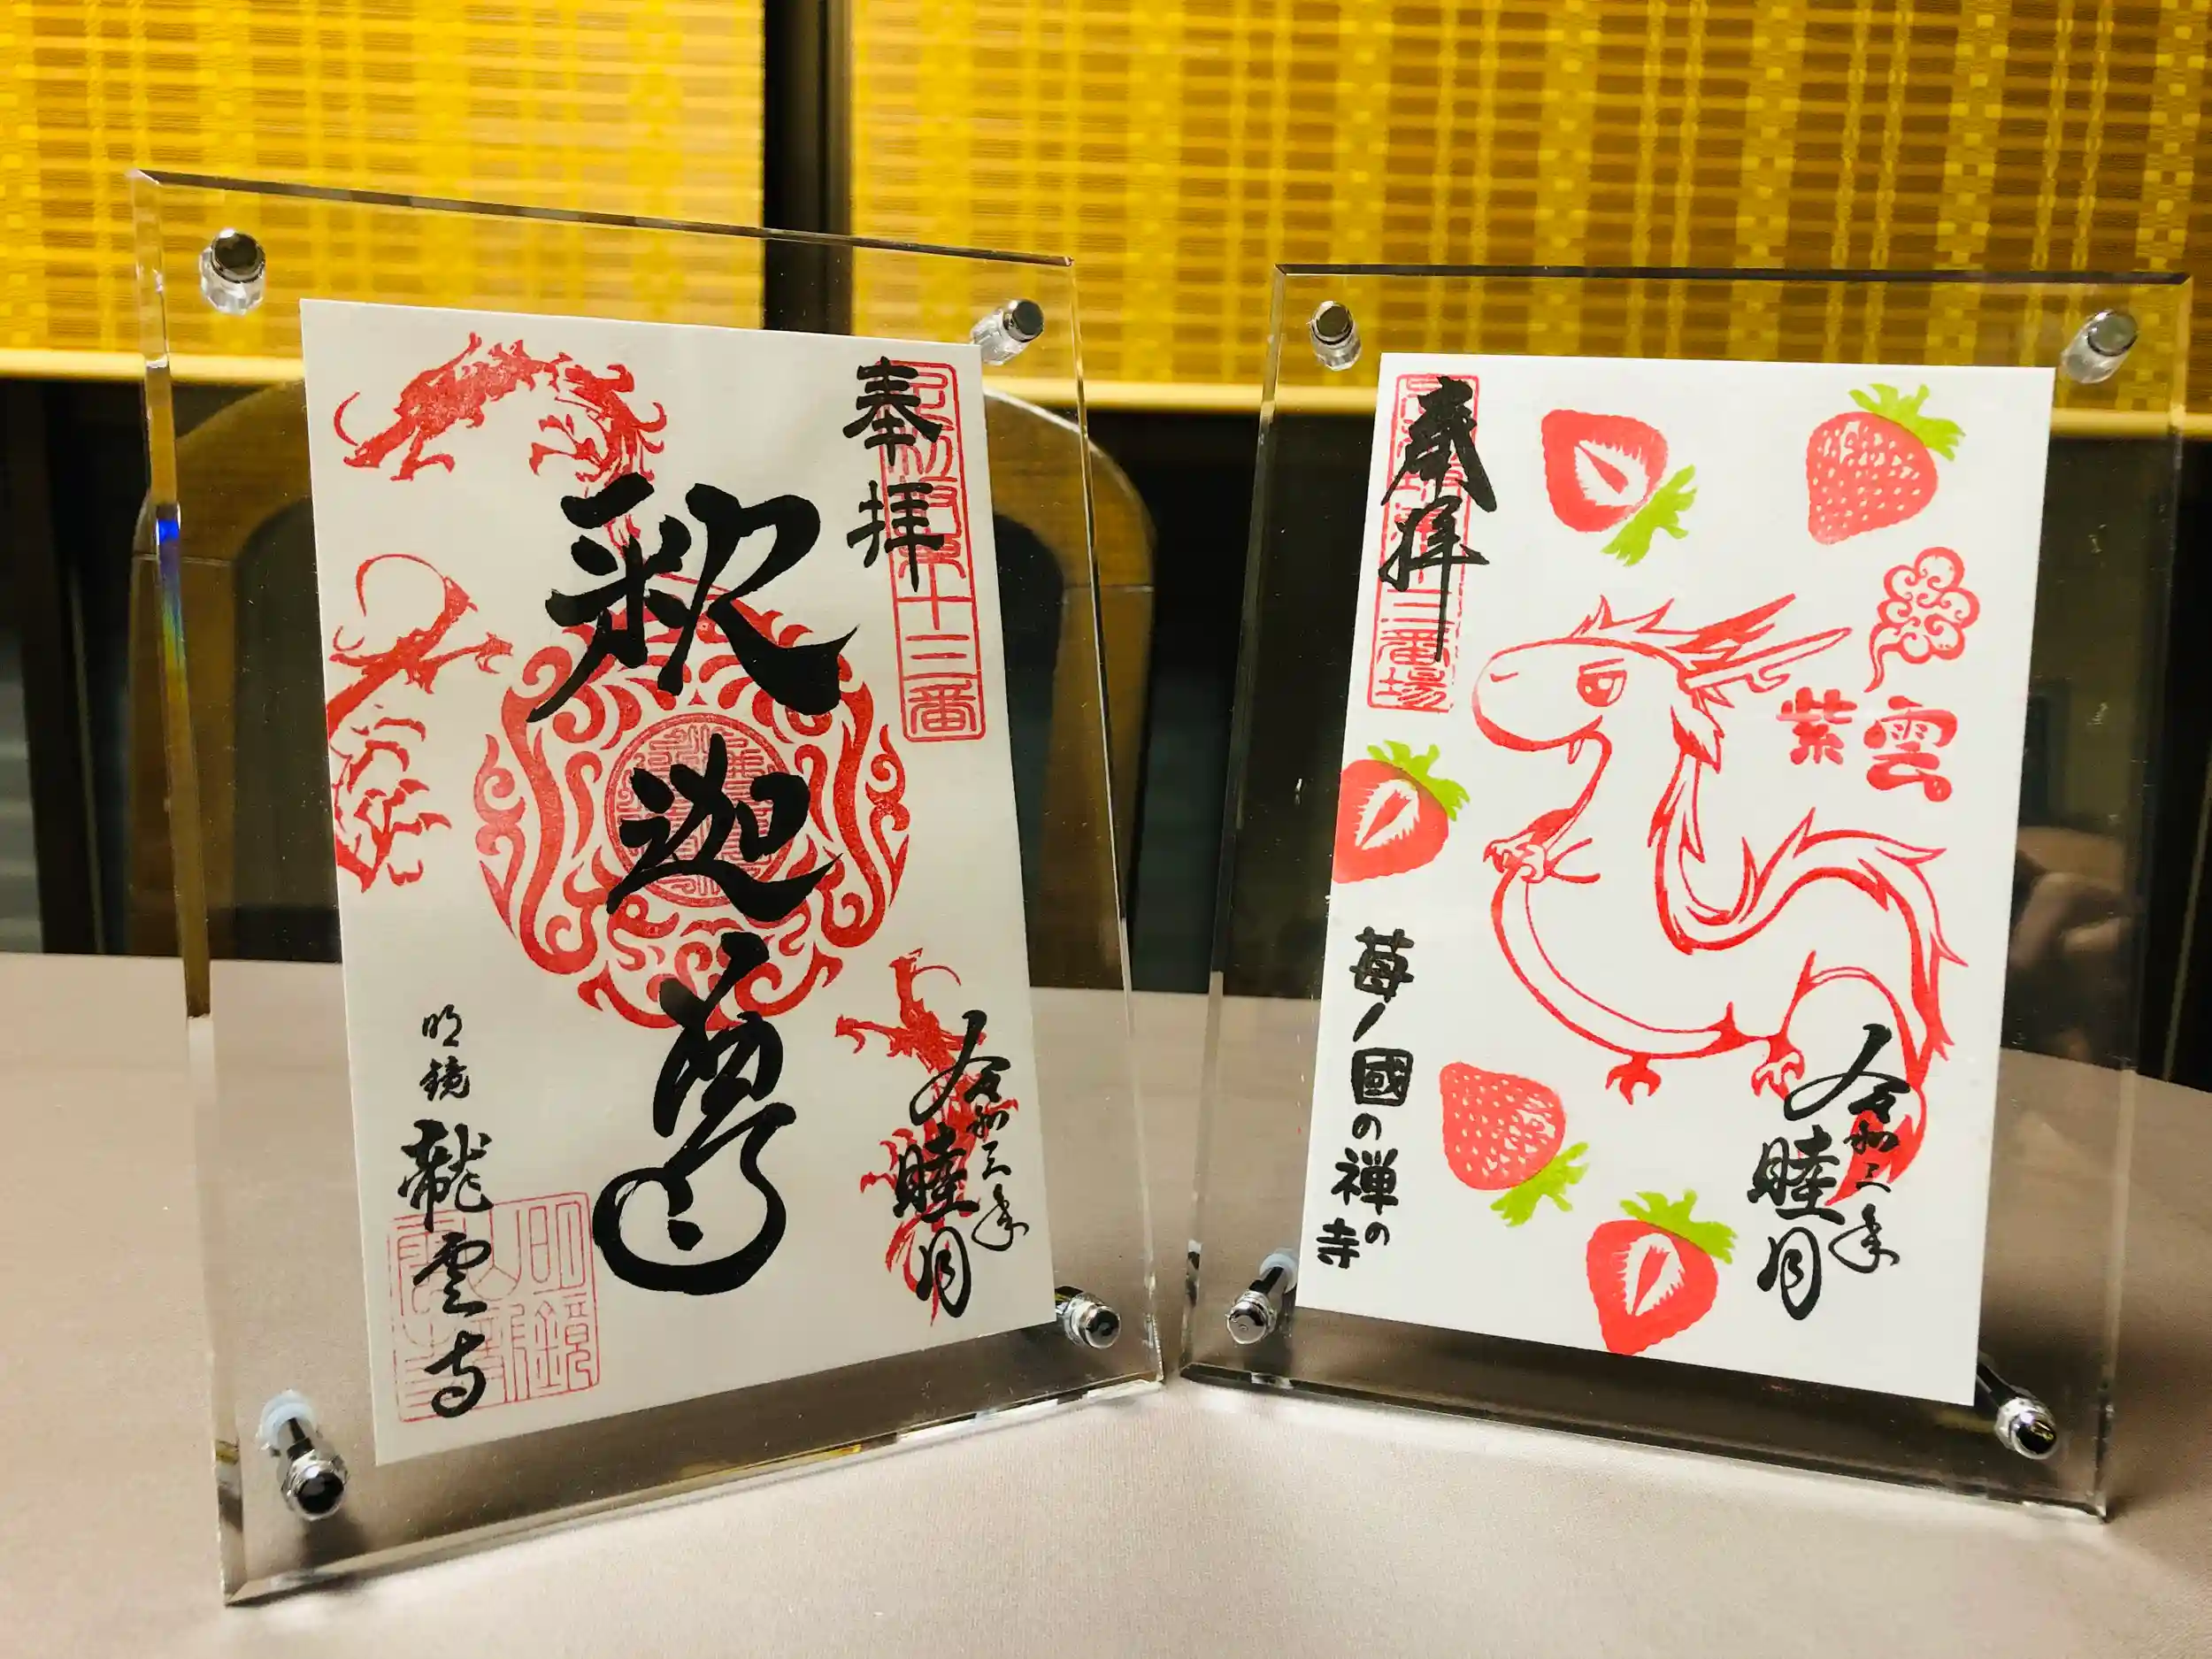 奉拝
十三番
釈迦尊
令和三年
睦月
明鏡
龍雲寺
奉拝
三番場
紫雲
苺ノ國の禅の寺
令和三年
睦月